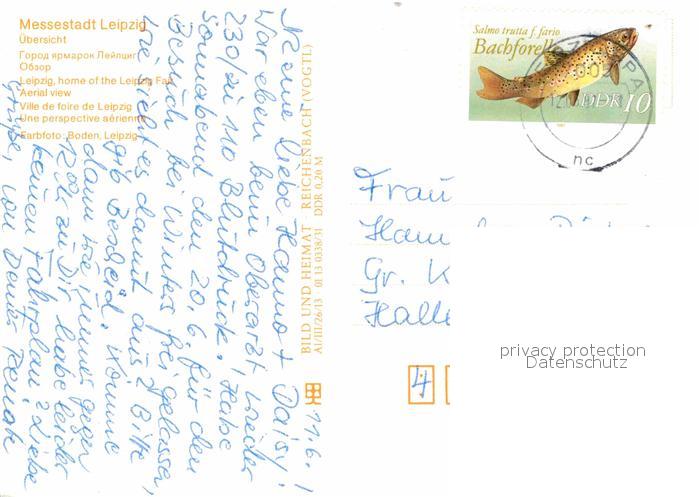 Messestadt Leipzig
Übersicht
Город ярмарок Лейпциг
Обзор
Leipzig, home of the Leipzig Fair
Aerial view
Ville de foire de Leipzig
Une perspective aérienne
Farbfoto: Boden, Leipzig
11.6.!
Meine liebe Hanno + Daisy!
War eben beim Oberarzt, wieder
230/zu 110 Blutdruck! Habe
Sonnabend den 20.6. für den
Besuch bei Winter frei gelassen,
vielleicht es damit aus? Bitte
gib Bescheid. Komme
dann wie immer gegen
12 zu Dir, habe leider
keinen Fahrplan? Liebe
Grüße, von Deiner Renate
BILD UND HEIMAT REICHENBACH (VOGTL)
A1/III/26/13 01 13 0338/31 DDR 0,20 M
Salmo trutta f. fario
Bachforelle
DDR 10
nc
Frau
Gr. K
Halle
4
privacy protection
Datenschutz